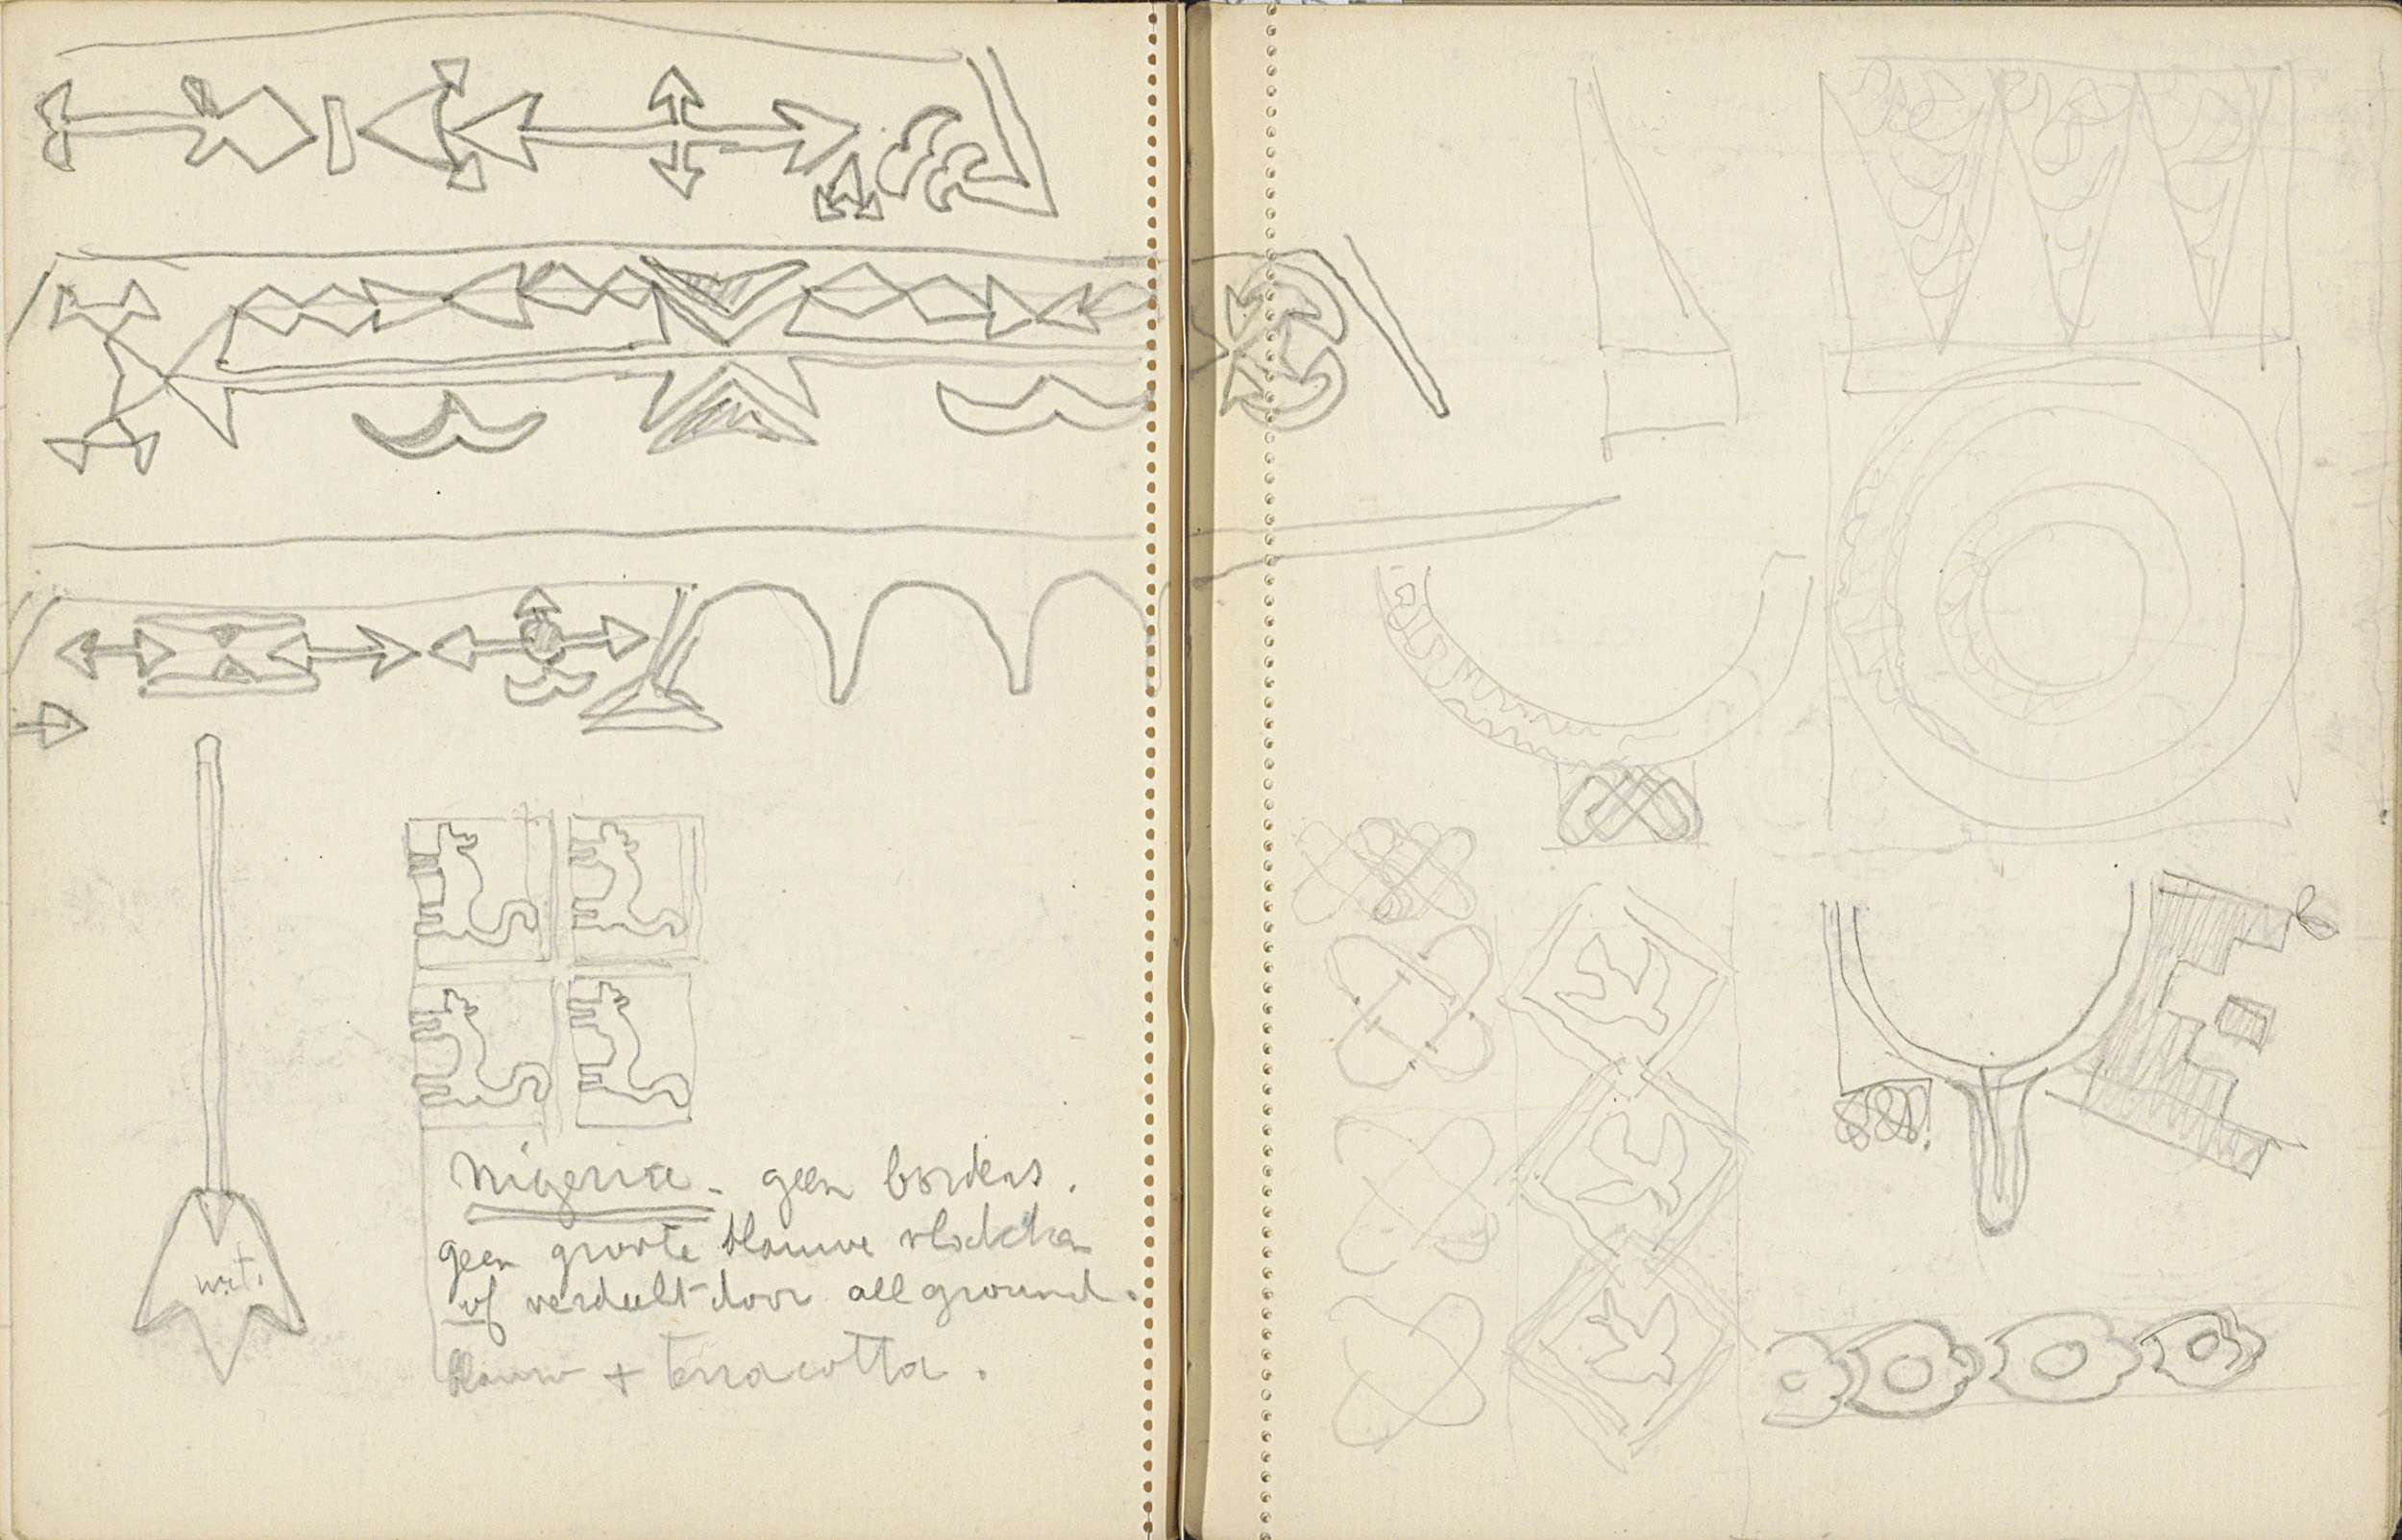 Nigeria - geen borders.
geen groote blauwe vlakken
of verdeelt door all ground.
blauw + terracotta.